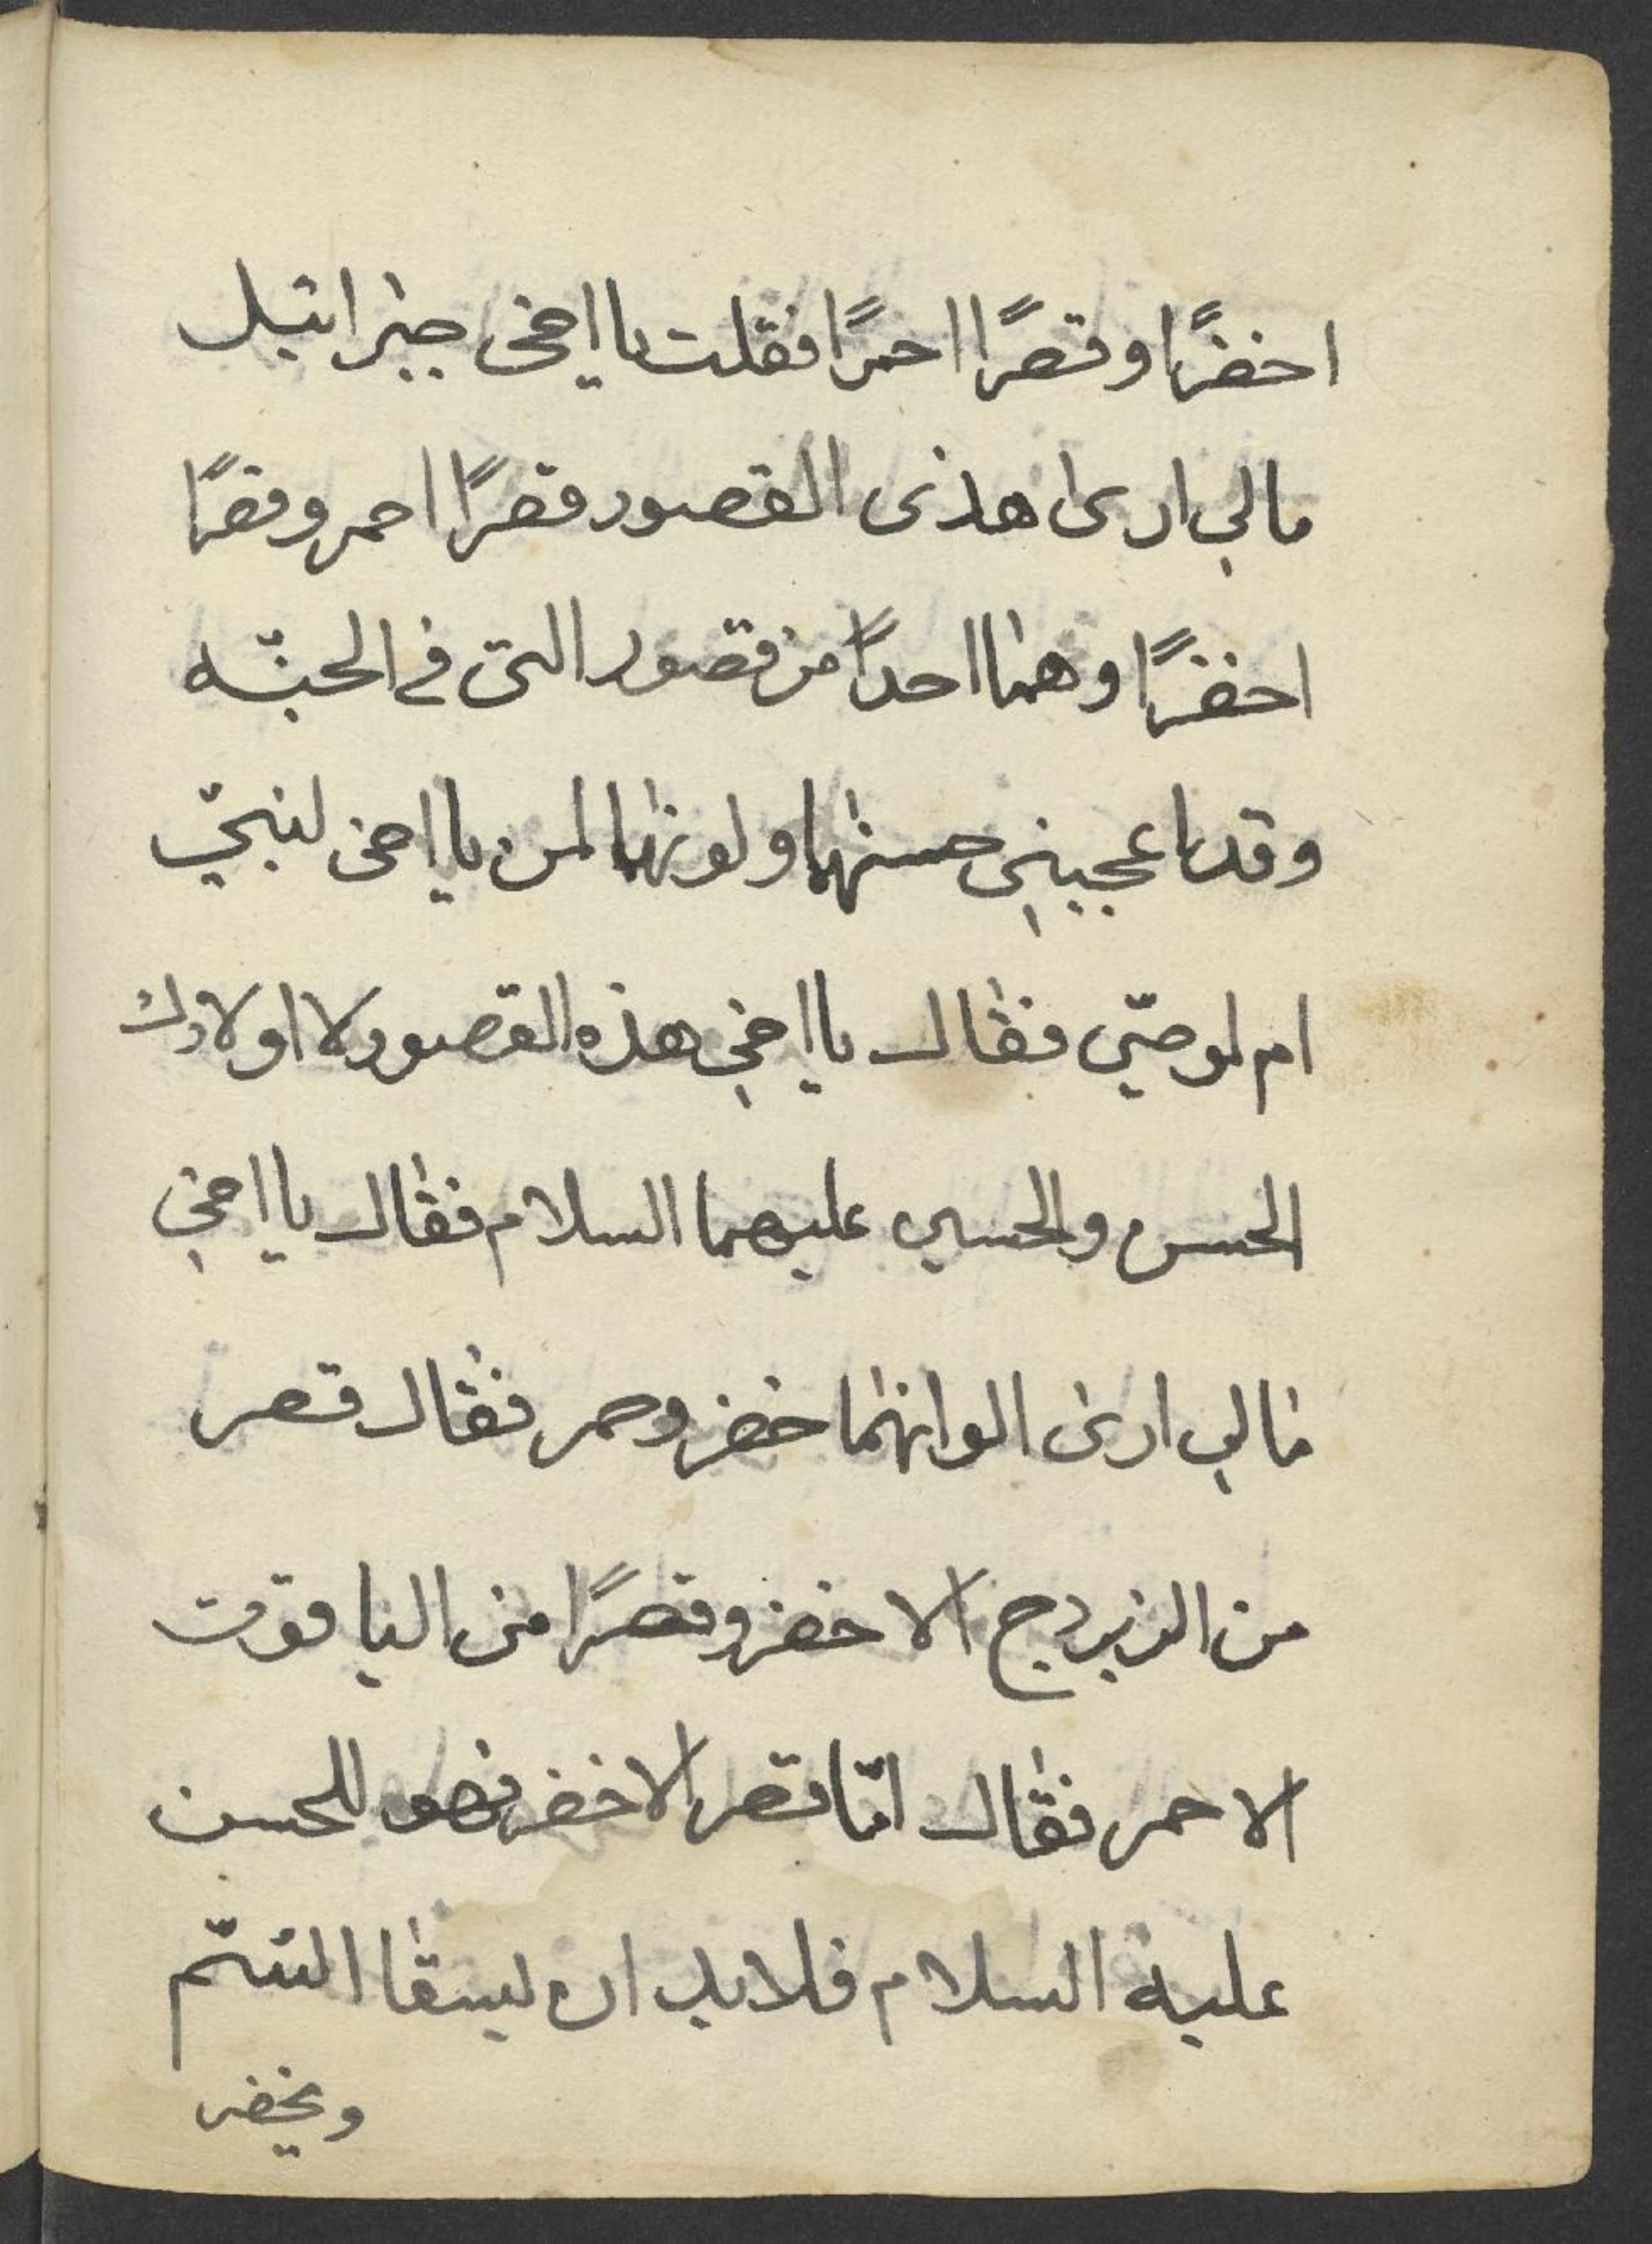 اخضرًا وقصرًا احمرًا فقلت يا اخى جبرائيل
مالي ارى هذى القصور قصرًا احمر وقصرًا
اخضرًا وهما احدًا من قصور التى في الجنّه
وقد اعجبني حسنهما ولونهما لمن يا اخى لنبيّ
ام لوصيّ فقال يا اخي هذه القصور لا اولادك
الحسن والحسين عليهما السلام فقال يا اخي
مالي ارى الوانهما خضر وحمر فقال قصر
من الزبردج الاخضر وقصرًا من الياقوت
الاحمر فقال امّا قصر الاخضر فهو للحسن
عليه السلام فلابد ان ليسقا السّم
ويخضر